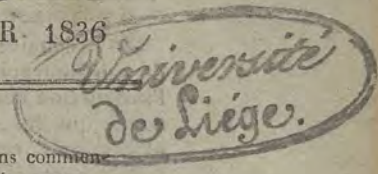 R 1836
Université
de Liége.
ns commen-